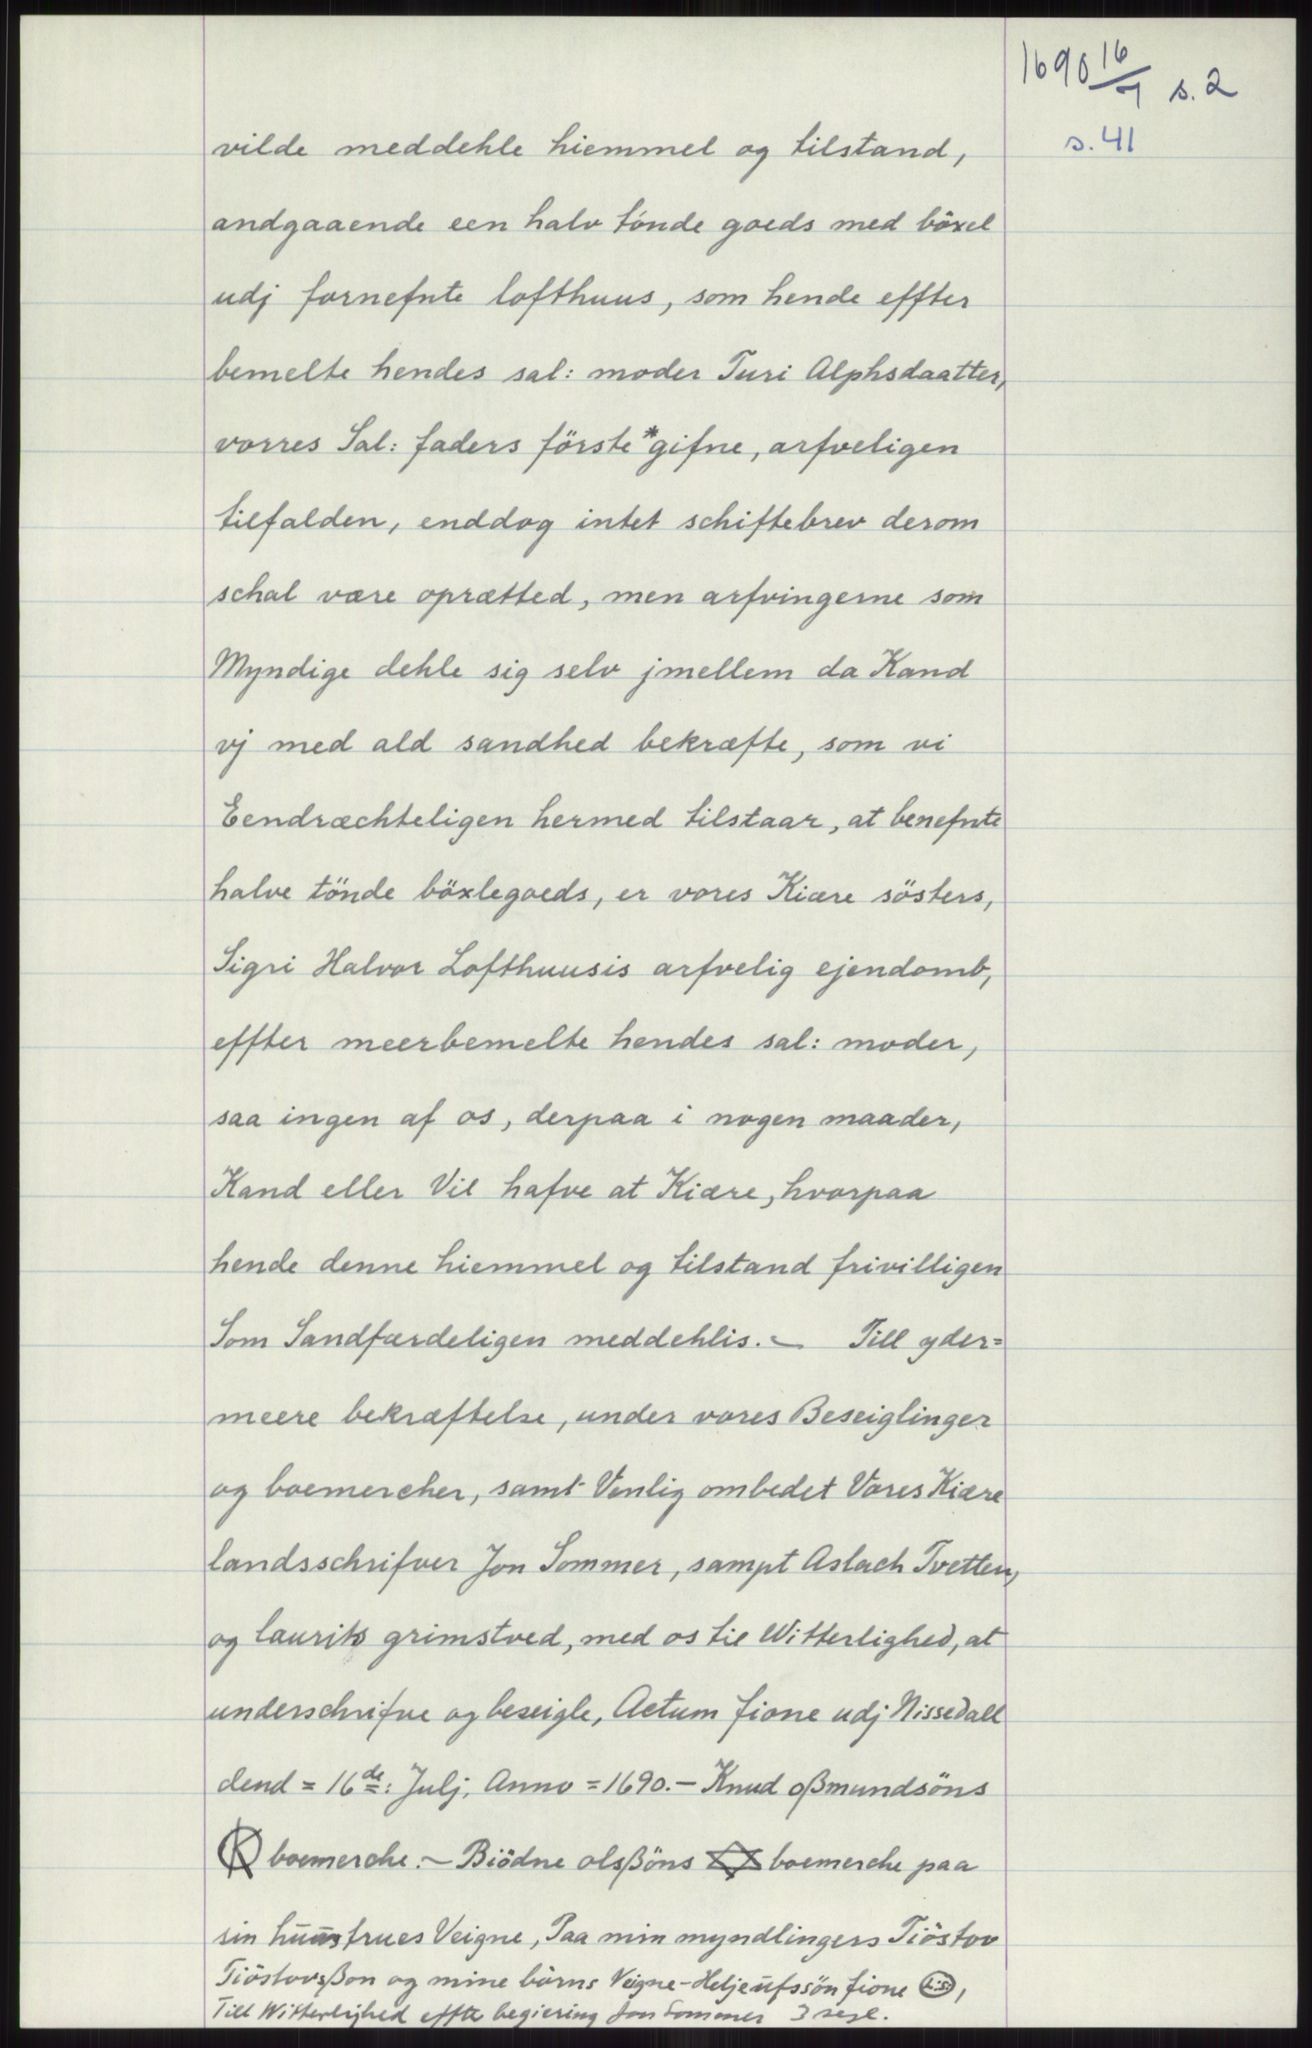 1690 16/7 s. 2
s. 41
vilde meddehle hiemmel og tilstand,
andgaaende een halv tónde goeds med böxel
udj fornefnte lofthuus, som hende effter
bemelte hendes sal: moder Turi Alphsdaatter,
vorres Sal: faders förste *gifne, arfveligen
tilfalden, enddog intet schiftebrev derom
schal være oprætted, men arfvingerne som
Myndige dehle sig selv jmellem da Kand
vj med ald sandhed bekræfte, som vi
Eendræchteligen hermed tilstaar, at benefnte
halve tönde böxlegoeds, er vores Kiære sösters,
Sigri Halvor Lofthuusis arfvelig ejendomb,
effter meerbemelte hendes sal: moder,
saa ingen af os, derpaa i nogen maader,
Kand eller Vil hafve at Kiære, hvorpaa
hende denne hiemmel og tilstand frivilligen
Som Sandfærdeligen meddehlis. — Till yder=
meere bekræftelse, under vores Beseiglinger
og boemercher, samt Venlig ombedet Vores Kiære
landsschrifver Jon Sommer, sampt Aslach Tvetten,
og laurits grimstved, med os til Witterlighed, at
underschrifve og beseigle, Actum fione udj Nissedall
dend = 16de: Julj, Anno = 1690. — Knud oßmundsöns
K boemerche. — Biödne olsßöns boemerche paa
sin huustrues Veigne, Paa min myndlingers Tiöstov
Tiöstovsßon og mine börns Veigne - Heljeufssön fione L:S:,
Till Witterlighed effte begiering Jon Sommer 3 segl.